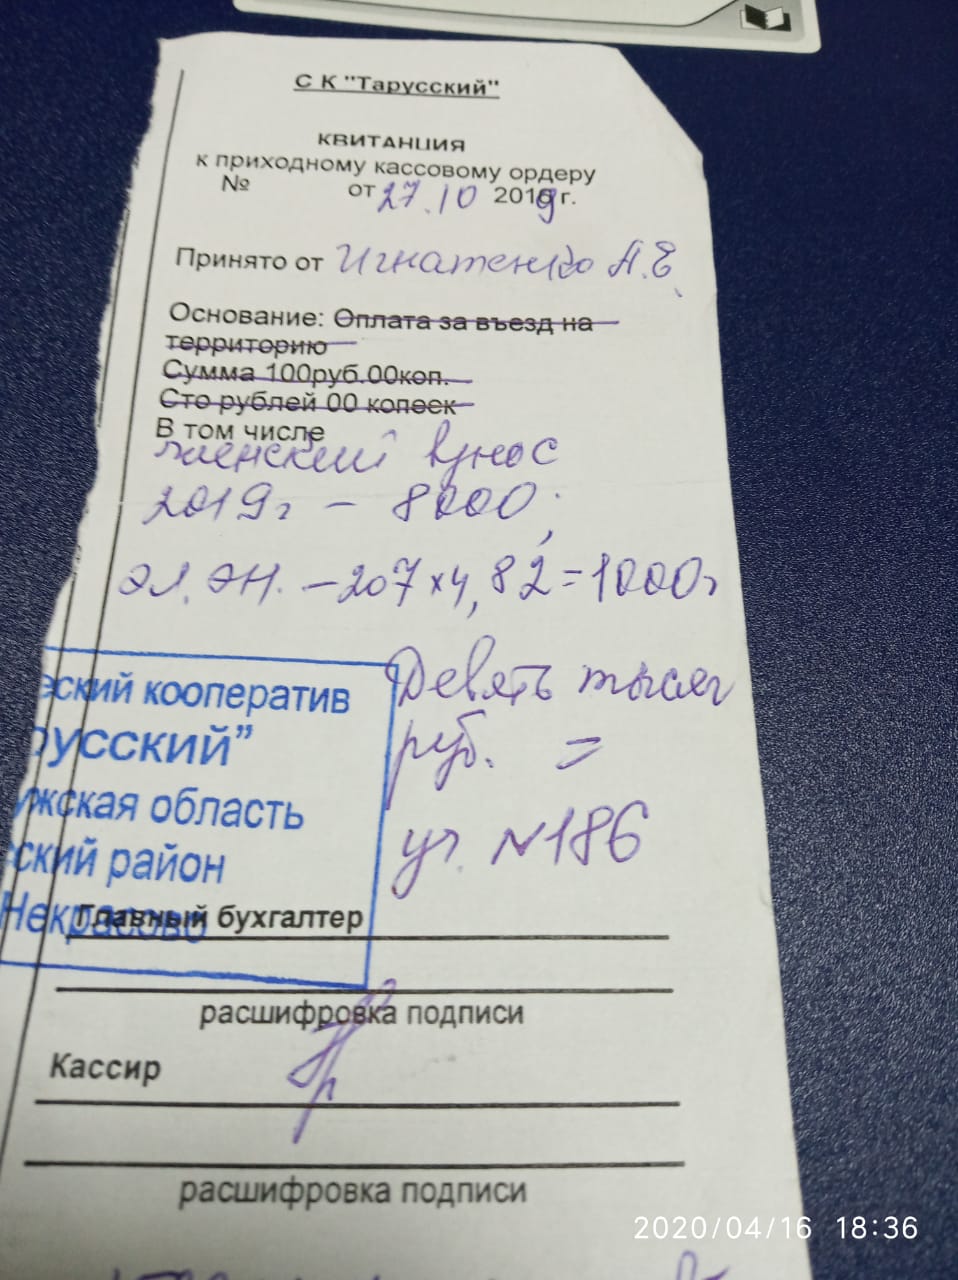 С К "Тарусский"
КВИТАНЦИЯ
к приходному кассовому ордеру
№ от 27.10 2019 г.
Принято от Игнатенко А.Е.
Основание: Оплата за въезд на
территорию
Сумма 100руб.00коп.
Сто рублей 00 копеек
В том числе
членский взнос
2019г – 8000;
эл. эн. – 207 х 4,82 = 1000
Девять тысяч
руб. =
уч. №186
еский кооператив
русский"
ужская область
ский район
Некрасово
Главный бухгалтер
расшифровка подписи
Кассир
расшифровка подписи
2020/04/16 18:36